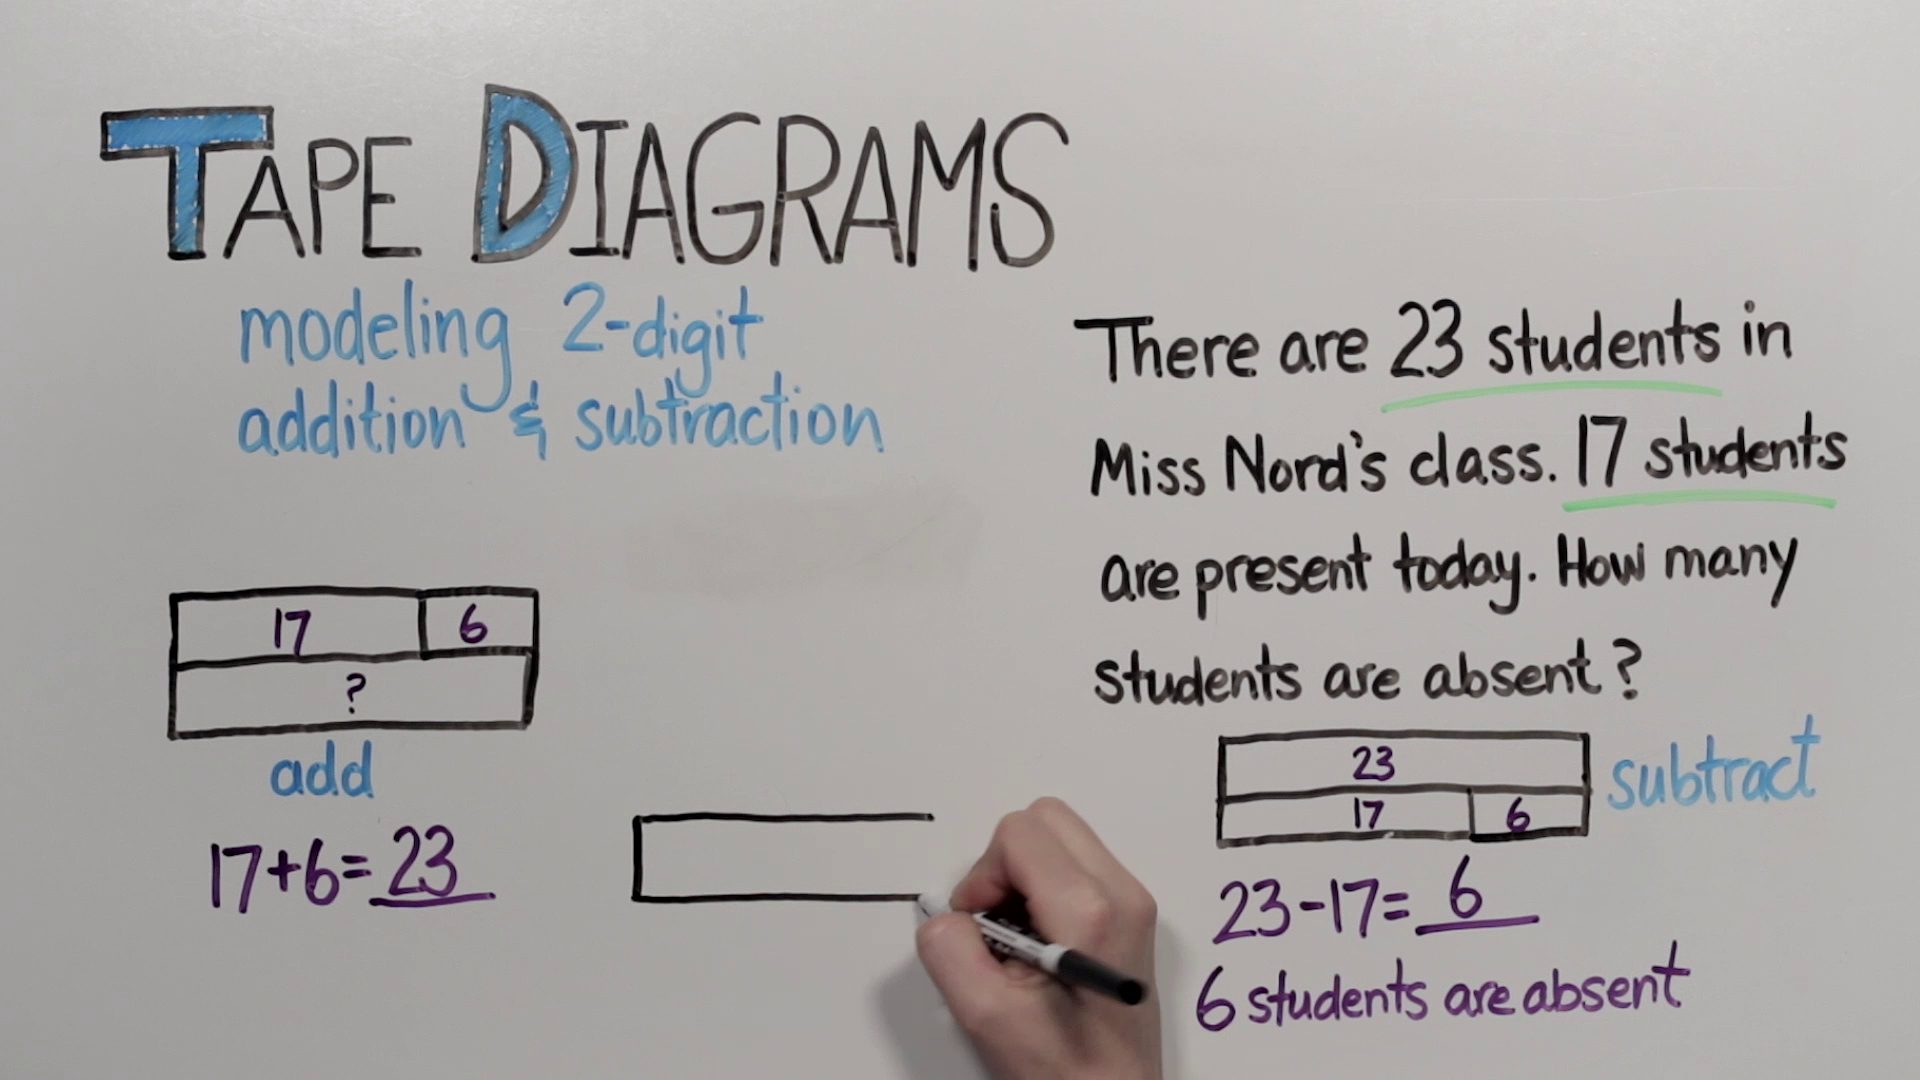 TAPE DIAGRAMS
modeling 2-digit
addition & subtraction
17 6
?
add
17+6=23
There are 23 students in
Miss Nord's class. 17 students
are present today. How many
students are absent?
23
17 6
subtract
23-17=6
6 students are absent